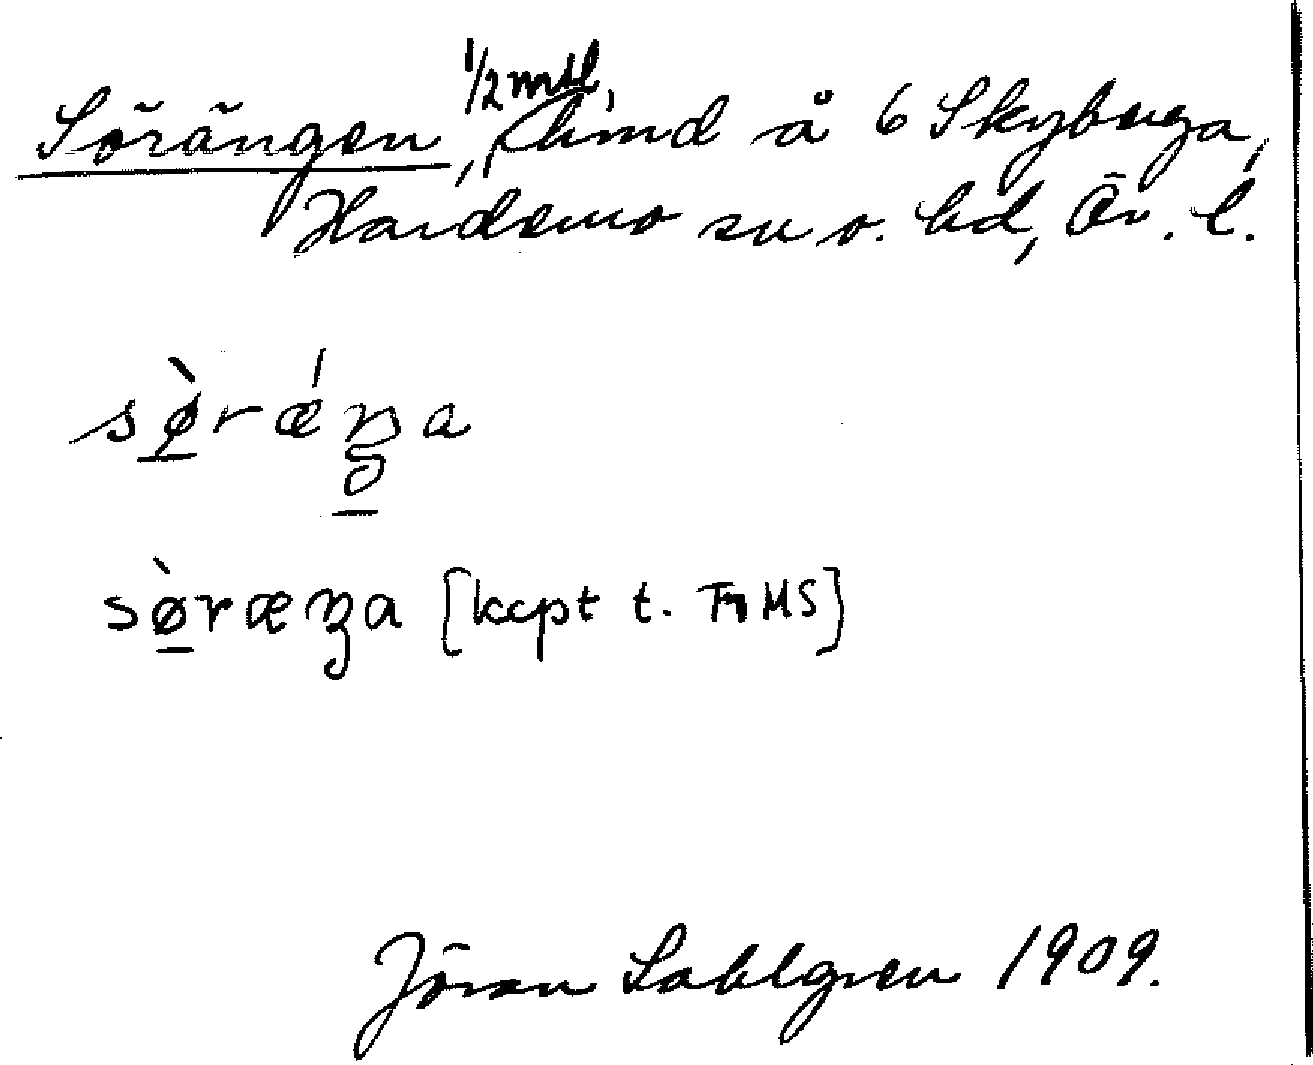 Sörängen, 1/2 mtl, hmd å 6 Skyberga,
Hardemo sn o. hd, Ör. l.
sø̀rǽŋa
sø̀ræŋa [kcpt t. Fm MS]
Jöran Sahlgren 1909.